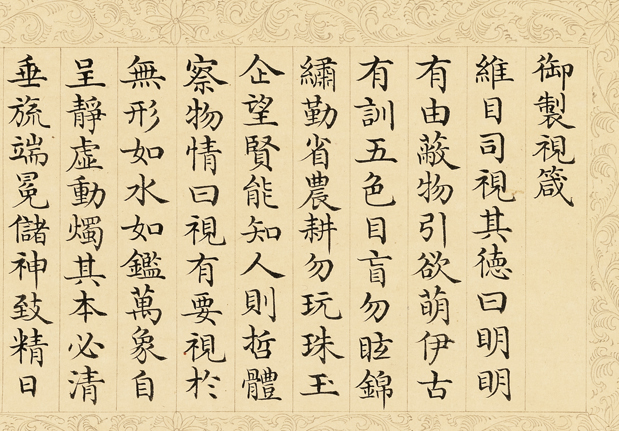 御製視箴
維目司視其德曰明明
有由蔽物引欲萌伊古
有訓五色目盲勿眩錦
繡勤省農耕勿玩珠玉
企望賢能知人則哲體
察物情曰視有要視於
無形如水如鑑萬象自
呈靜虛動燭其本必清
垂旒端冕儲神致精日